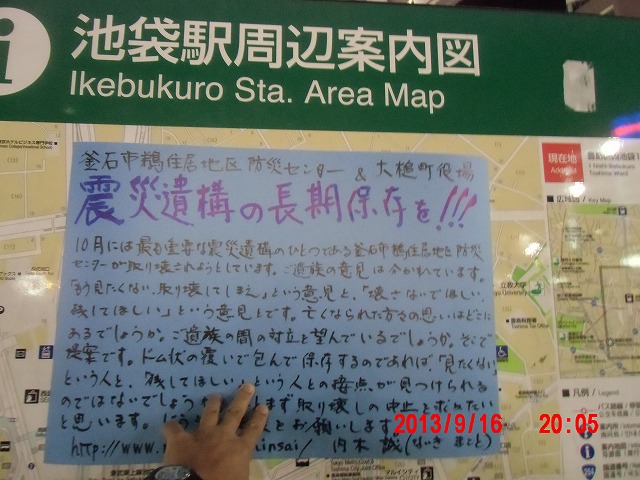 池袋駅周辺案内図
Ikebukuro Sta. Area Map
釜石市鵜住居地区防災センター & 大槌町役場
震災遺構の長期保存を!!!
10月には最も重要な震災遺構のひとつである釜石市鵜住居地区防災
センターが取り壊されようとしています。ご遺族の意見は分かれています。
「もう見たくない、取り壊してしまえ」という意見と、「壊さないでほしい、
残してほしい」という意見とです。亡くなられた方々の思いはどこに
あるでしょうか。ご遺族の間の対立を望んでいるでしょうか。そこで
提案です。ドーム状の覆いで包んで保存するのであれば、「見たくない」
という人と、残してほしいという人との接点が見つけられる
のではないでしょうか まず取り壊しの中止を求めたい
と思います。 とお願いします
http://www. insai/ 内木 誠(ないき まこと)
現在地
広域図 / Key Map
立教大学
凡例 / Legend
2013/9/16 20:05